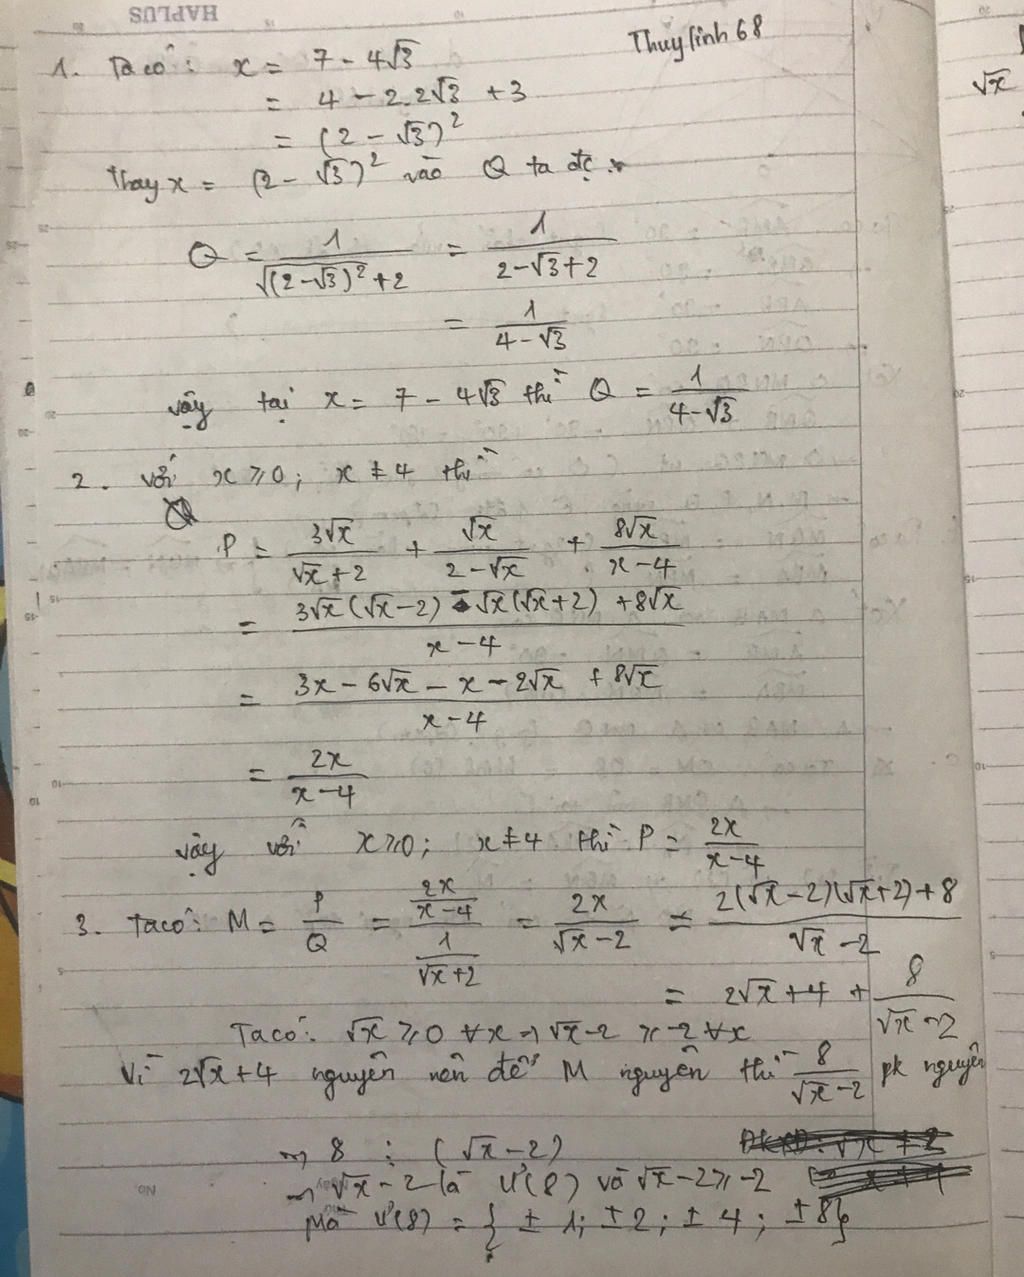 HAPLUS
Thuỳ linh 68
1. Ta có: x = 7 - 4√3
= 4 - 2.2√3 + 3
= (2 - √3)²
Thay x = (2 - √3)² vào Q ta đc
Q = 1/(√(2-√3)² + 2) = 1/(2-√3+2)
= 1/(4-√3)
vậy tại x = 7 - 4√3 thì Q = 1/(4-√3)
2. với x ⩾ 0; x ≠ 4 thì
P = 3√x/(√x+2) + √x/(2-√x) + 8√x/(x-4)
= (3√x(√x-2) - √x(√x+2) + 8√x)/(x-4)
= (3x - 6√x - x - 2√x + 8√x)/(x-4)
= 2x/(x-4)
vậy với x ⩾ 0; x ≠ 4 thì P = 2x/(x-4)
3. Ta có: M = P/Q = (2x/(x-4))/(1/(√x+2)) = 2x/(√x-2) = (2(√x-2)(√x+2)+8)/(√x-2)
= 2√x+4 + 8/(√x-2)
Ta có: √x ⩾ 0 ∀x ⇒ √x-2 ⩾ -2 ∀x
Vì 2√x+4 nguyên nên để M nguyên thì 8/(√x-2) pk nguyên
⇒ 8 ⋮ (√x-2)
⇒ √x-2 là Ư(8) và √x-2 ⩾ -2
Mà Ư(8) = { ±1; ±2; ±4; ±8}
√x